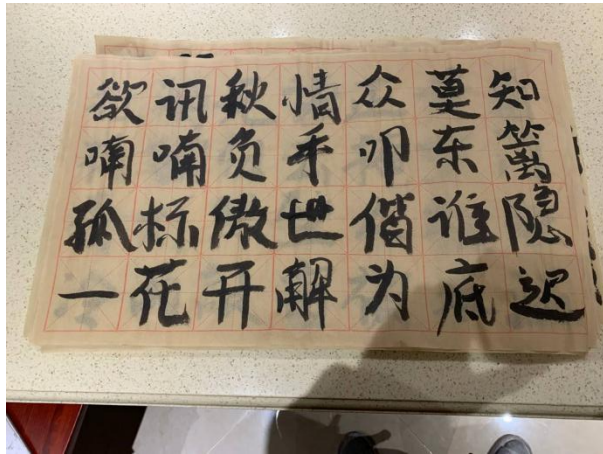 欲讯秋情众莫知
喃喃负手叩东篱
孤标傲世偕谁隐
一花开解为底迟